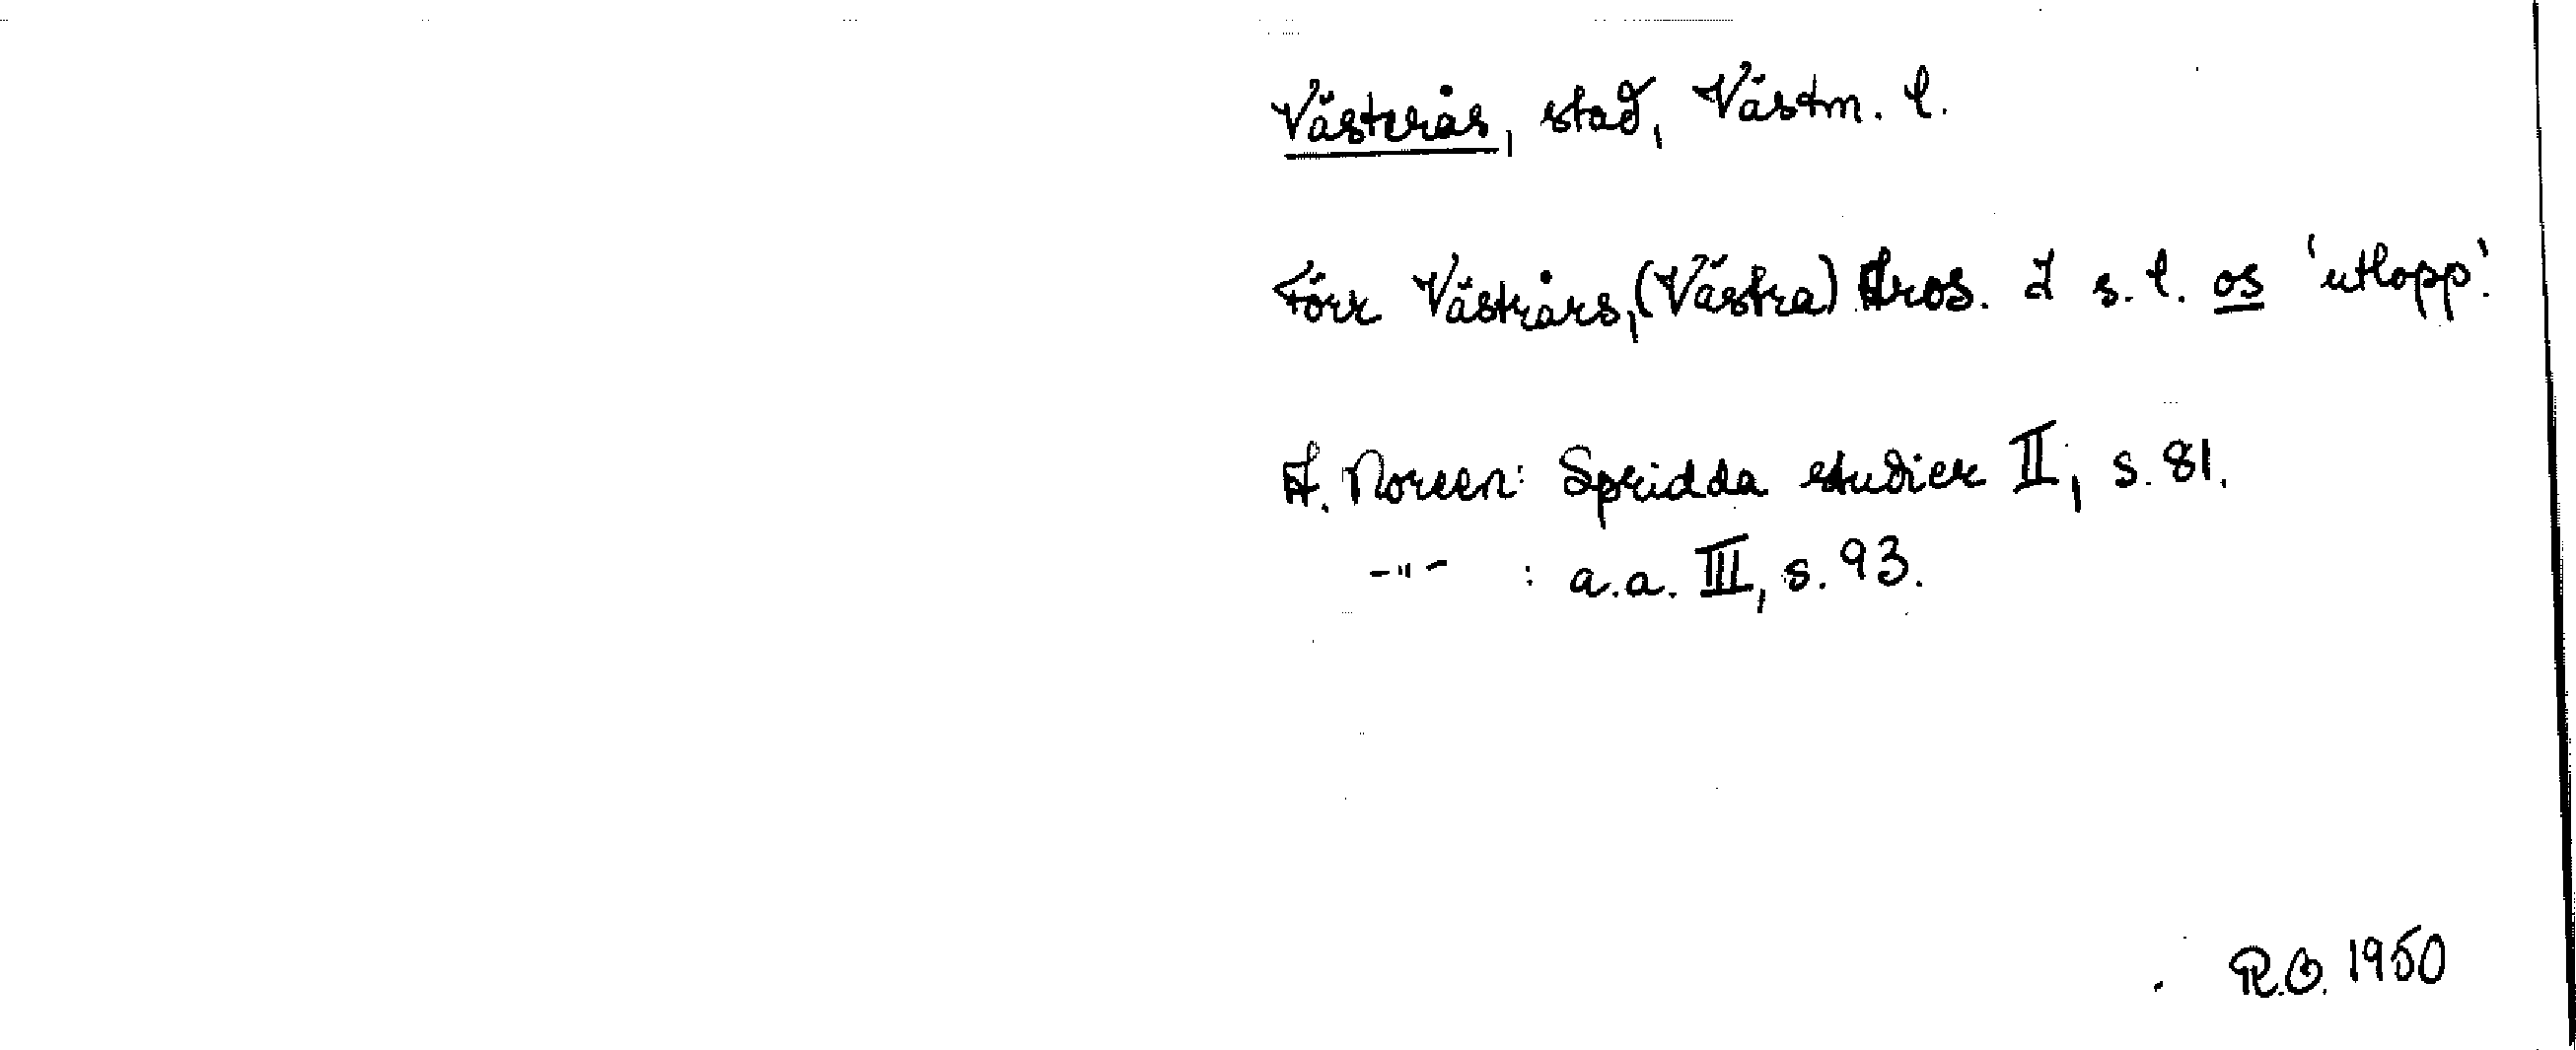 Västerås, stad, Västm. l.
Förr Västrårs, (Västra) Aros. I s. l. os 'utlopp'.
A. Noreen: Spridda studier II, s. 81.
-"- : a.a. III, s. 93.
R.O. 1950